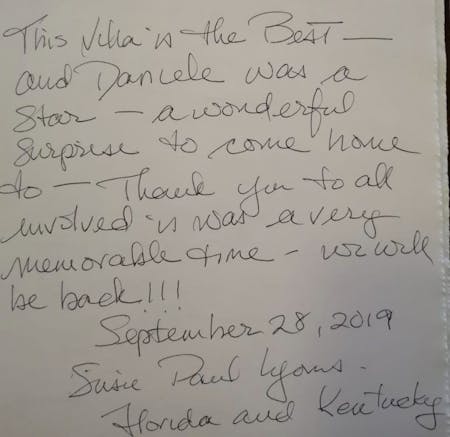 This Villa is the Best —
and Daniele was a
Star — a wonderful
Surprise to come home
to — Thank you to all
involved it was a very
memorable time - we will
be back!!!
September 28, 2019
Susie Paul Lyons.
Florida and Kentucky